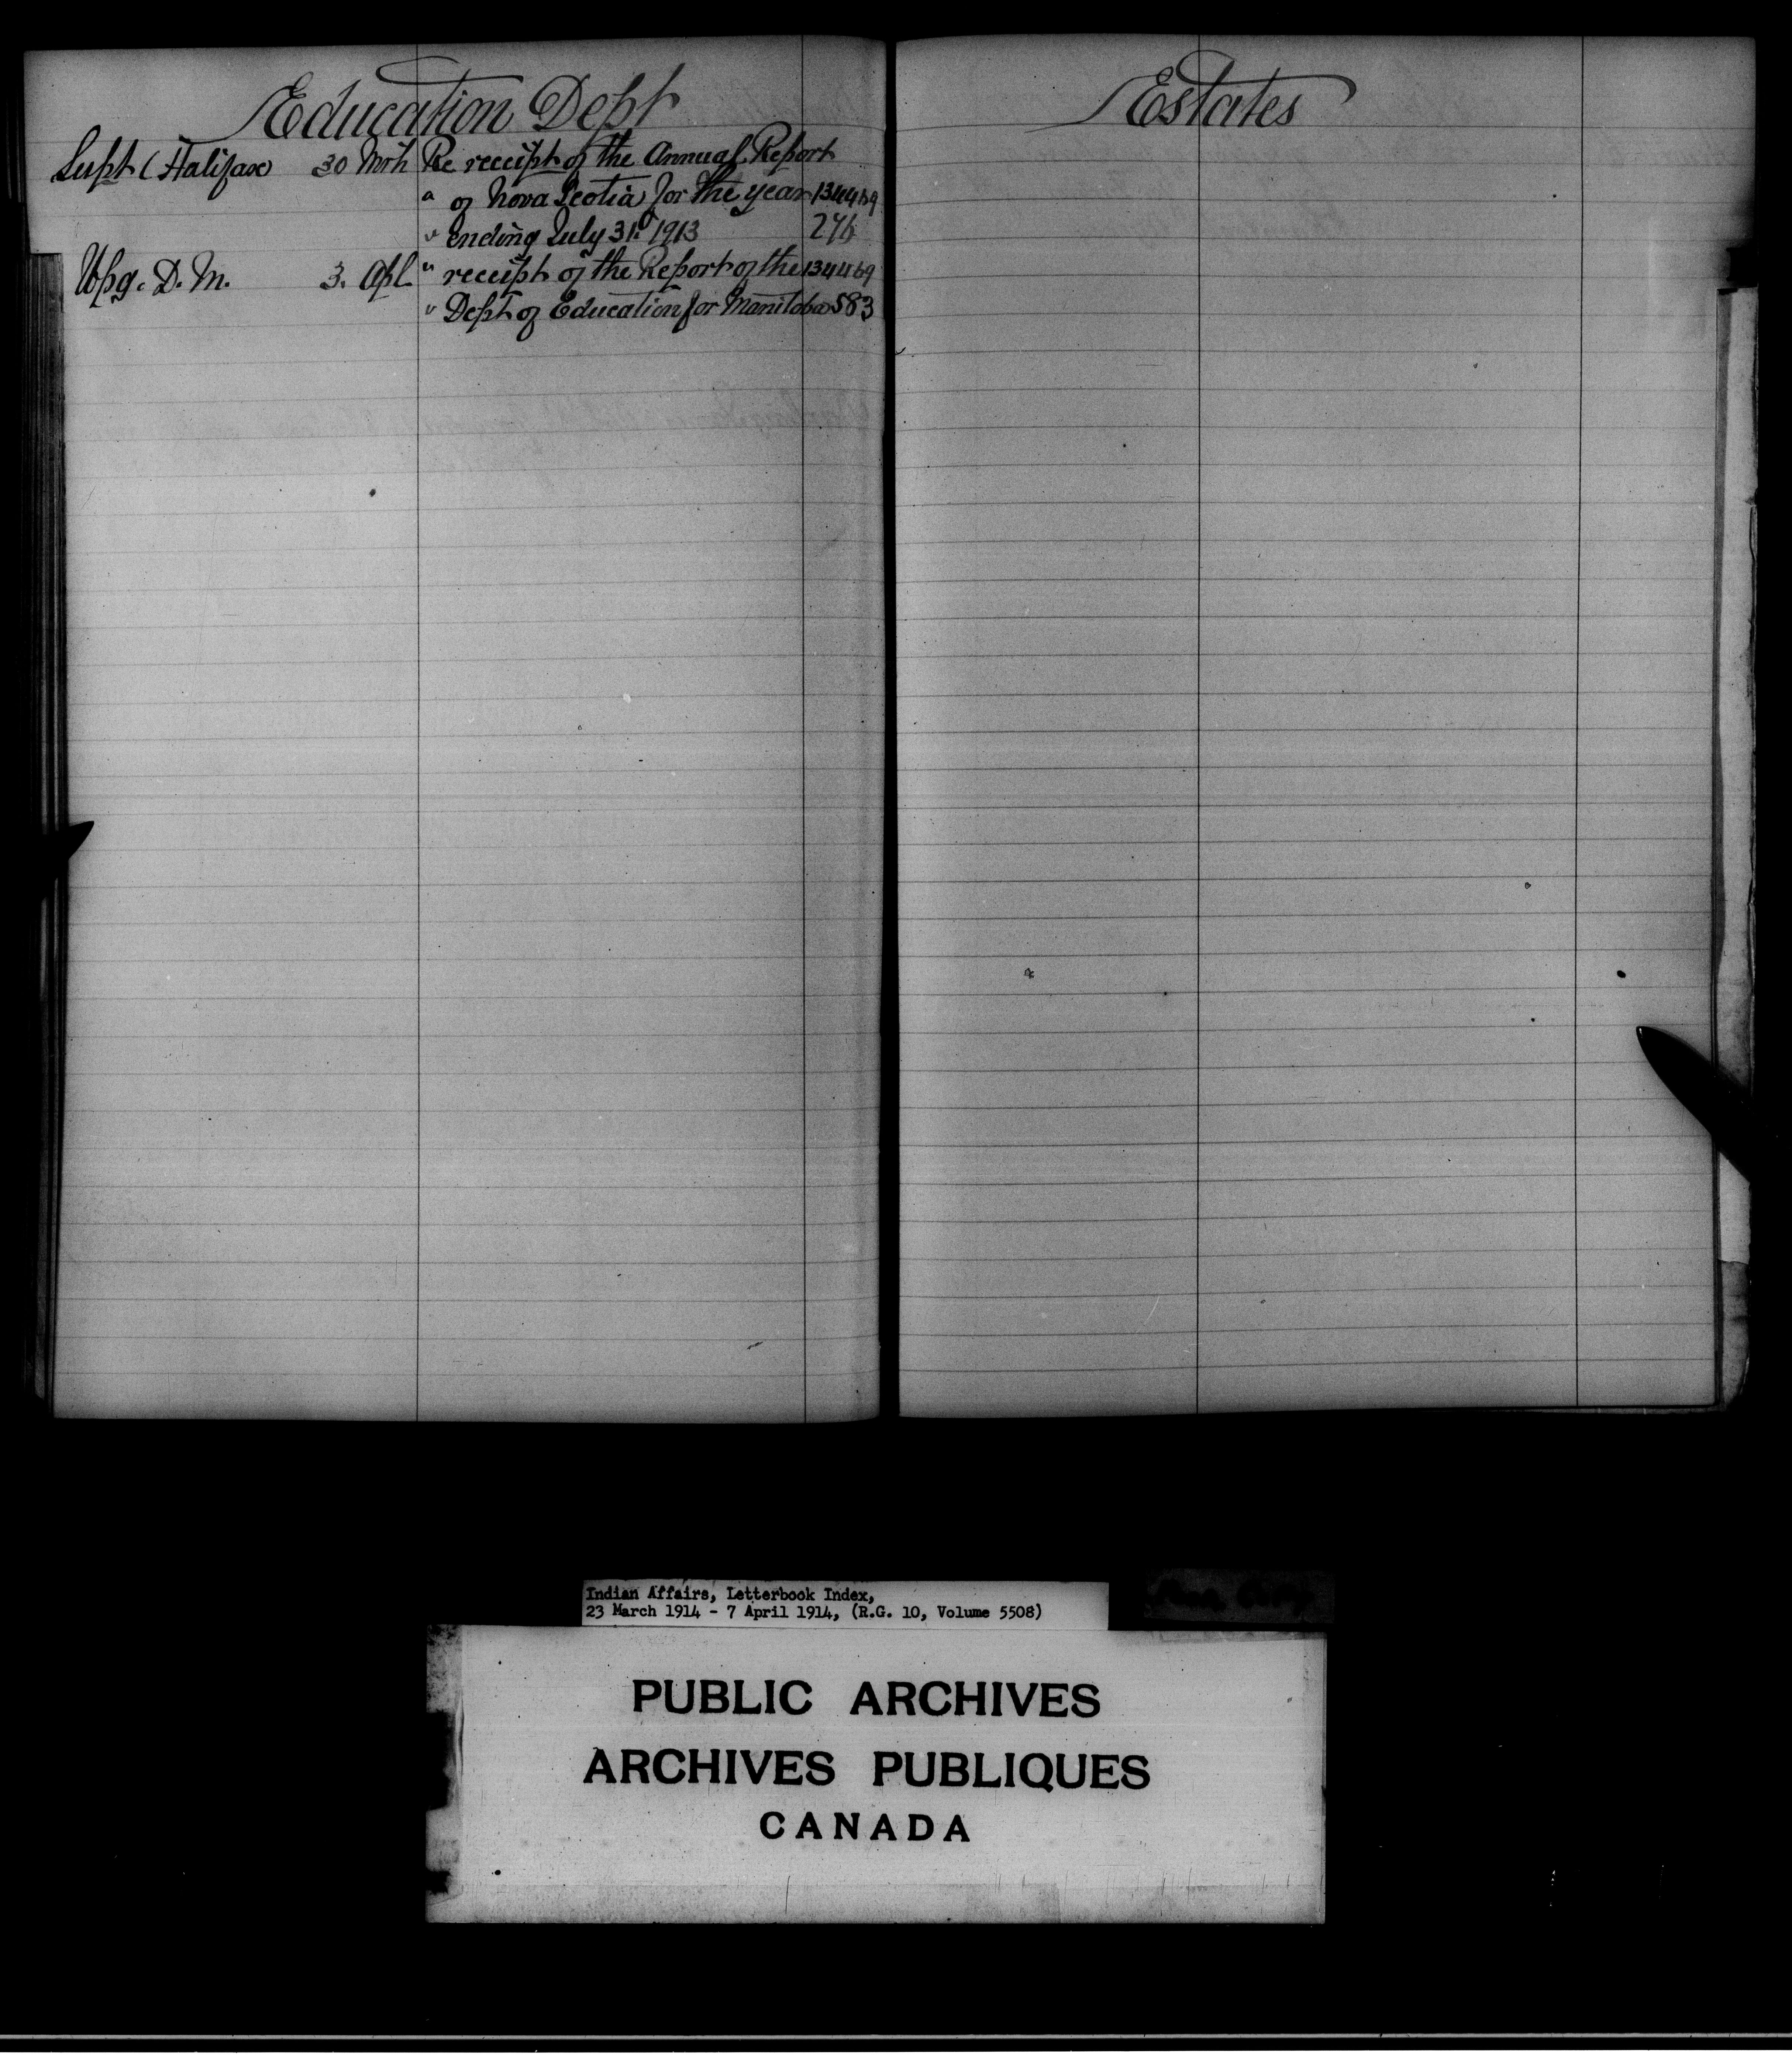 Education Dept
Supt (Halifax) 30 Mrh Re receipt of the Annual Report
" of Nova Scotia for the year 1344169
" ending July 31st 1913 276
Wpg. D. M. 3. Apl " receipt of the Report of the 1344169
" Dept of Education for Manitoba 583
Estates
Indian Affairs, Letterbook Index,
23 March 1914 - 7 April 1914, (R.G. 10, Volume 5508)
PUBLIC ARCHIVES
ARCHIVES PUBLIQUES
CANADA